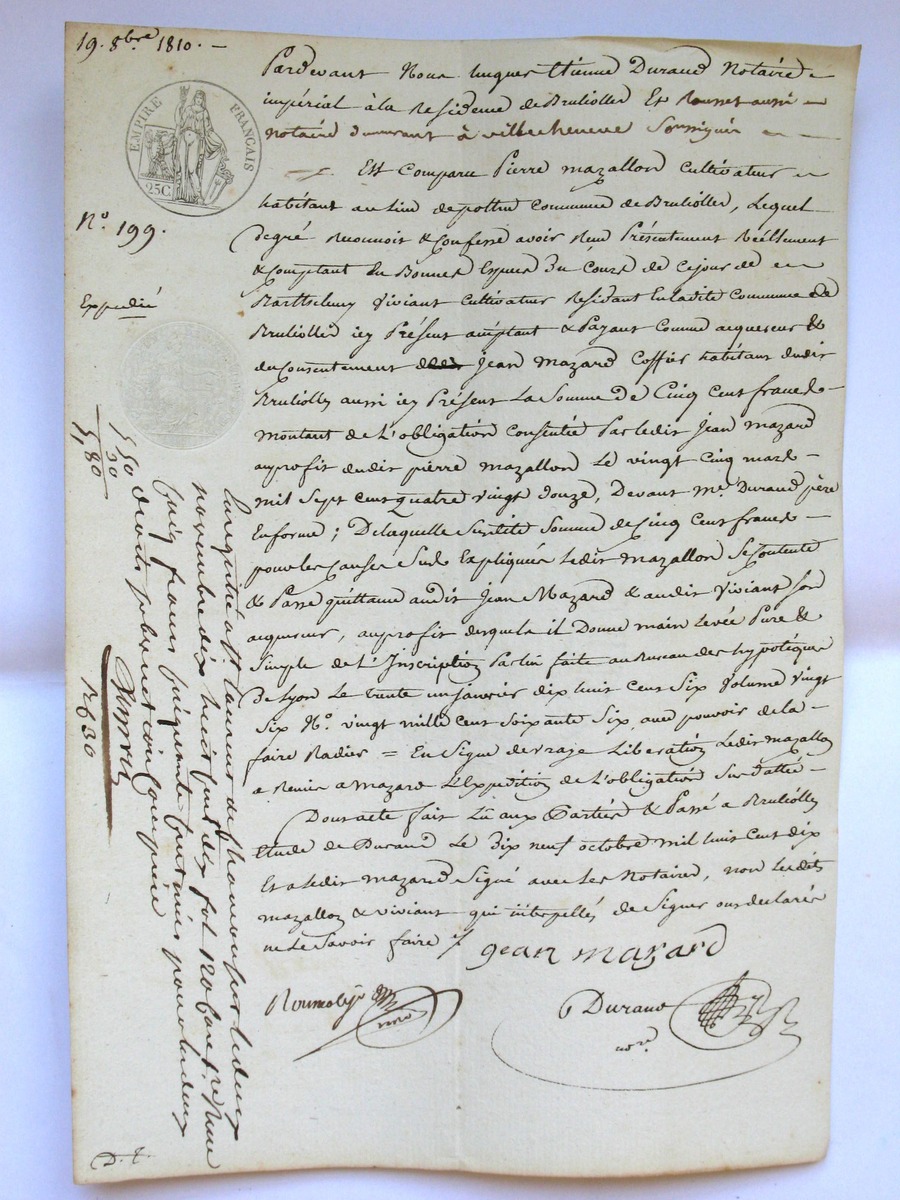 19. 8bre 1810. —
EMPIRE FRANÇAIS
25C
N.o 199.
Expedié
Pardevant Nous hugues Etienne Durand Notaire
impérial à la Residence de Brulliolles Et aussi
notaire à villecheneve Soussignés
Est Comparu Pierre mazallon Cultivateur
habitant au lieu de pottru Commune de Brulliolles, Lequel
degré Reconnoit & Confesse avoir Reçu Présentement Réêllement
& Comptant En Bonnes Espèces Du Cours de Cejour de
Barthelemy Viviant Cultivateur Residant Enladite Commune de
Brulliolles icy Présent acceptant & Payant Comme acquereur &
du Consentement de Jean Mazard Coffier habitant dudit
Brulliolles aussi icy Présent La Somme de Cinq Cent francs
montant de L'obligation Consentie Parledit Jean Mazard
auprofit dudit pierre mazallon Le vingt Cinq mars
mil Sept Cent quatre vingt douze, Devant Me. Durand père
En forme ; De laquelle Susdite Somme de Cinq Cent francs
pour les Causes Sus Expliquées Ledit mazallon Se Contente
& Passe quittance audit Jean Mazard & audit Viviant Son
acquereur, auprofit desquels il Donne main Levée Pure &
Simple de L'Inscription Par lui faite au Bureau des hypotèques
De Lyon Le trente un janvier dix huit Cent Six Volume Vingt
Six No. vingt mille Cent Soixante Six, avec pouvoir de la
faire Radier = En Signe de vraje Liberation Ledit mazallon
a Remis a mazard L'Expedition de L'obligation Sus Dattée
Dont acte fait Lu aux Parties & Passé a Brulliolles
Etude de Durand Le Dix neuf octobre mil huit Cent dix
Et a Ledit mazard Signé avec Les Notaires, non Lesdits
mazallon & viviant qui interpellés de Signer ont declarés
ne Le Savoir faire
jean mazard
Durand
nore.
5 50
30
5, 80
novembre dix huit cent dix fol 120
cinq francs cinquante centimes pour
R 6 30
D. t.